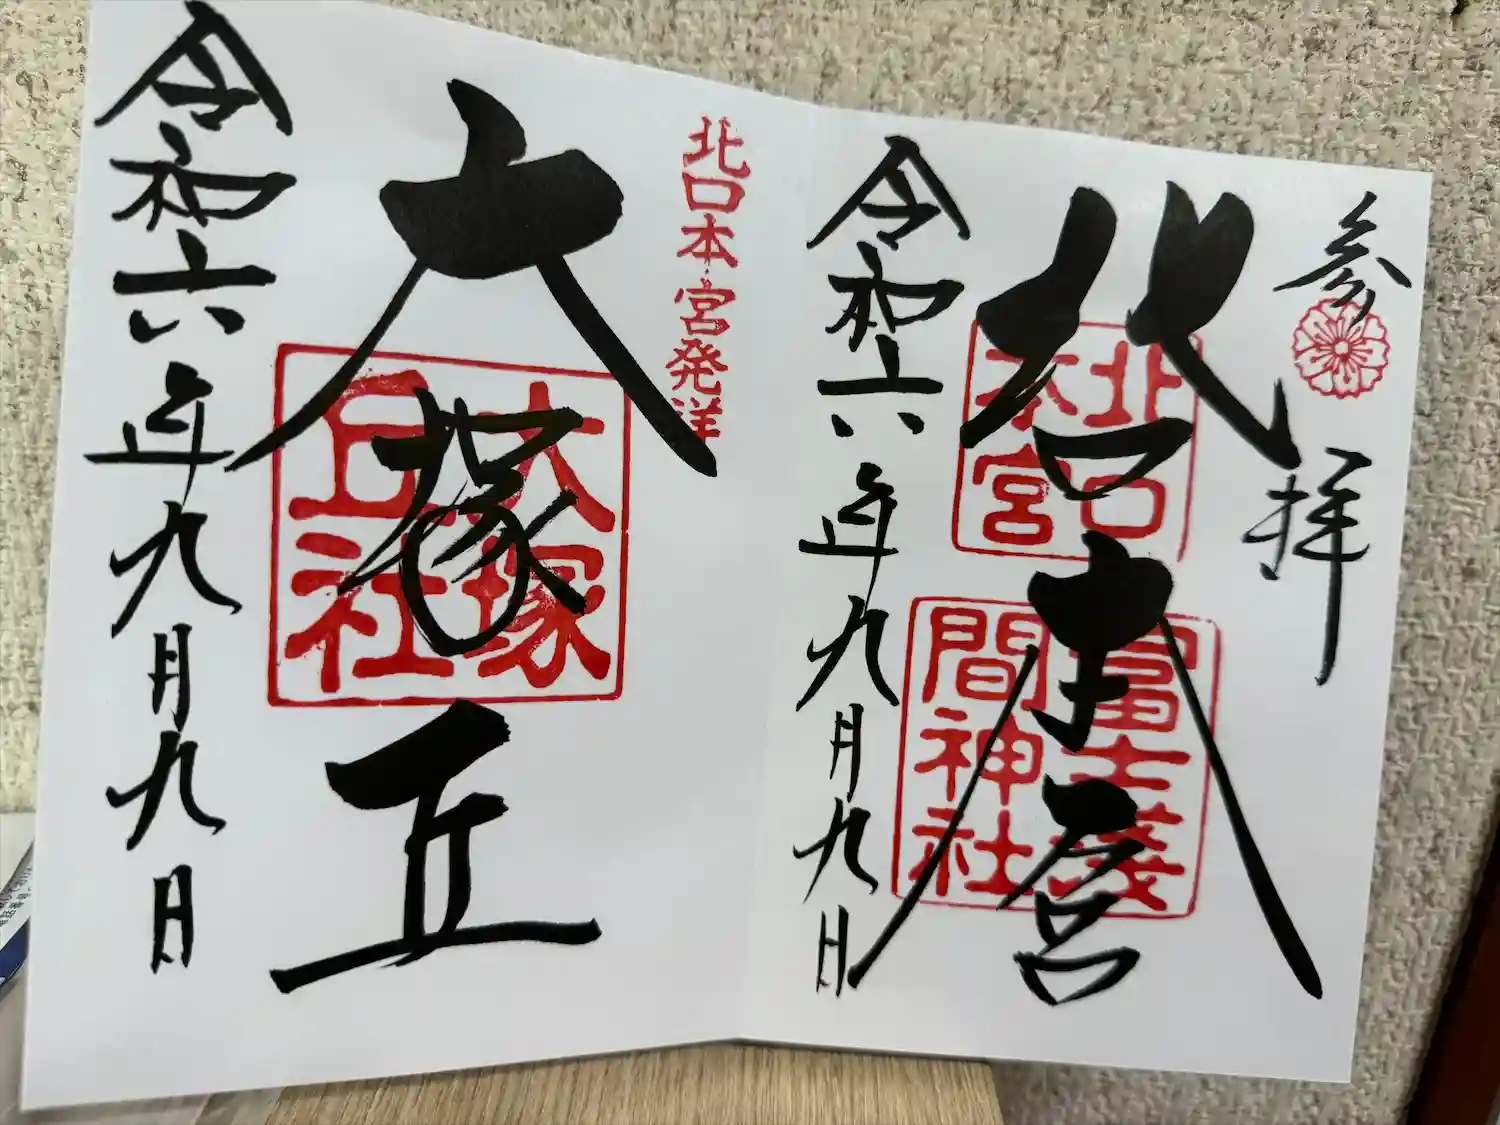 参拝
北口本宮
北口
本宮
富士淺
間神社
令和六年九月九日
北口本宮発祥
大塚丘
大塚
丘社
令和六年九月九日